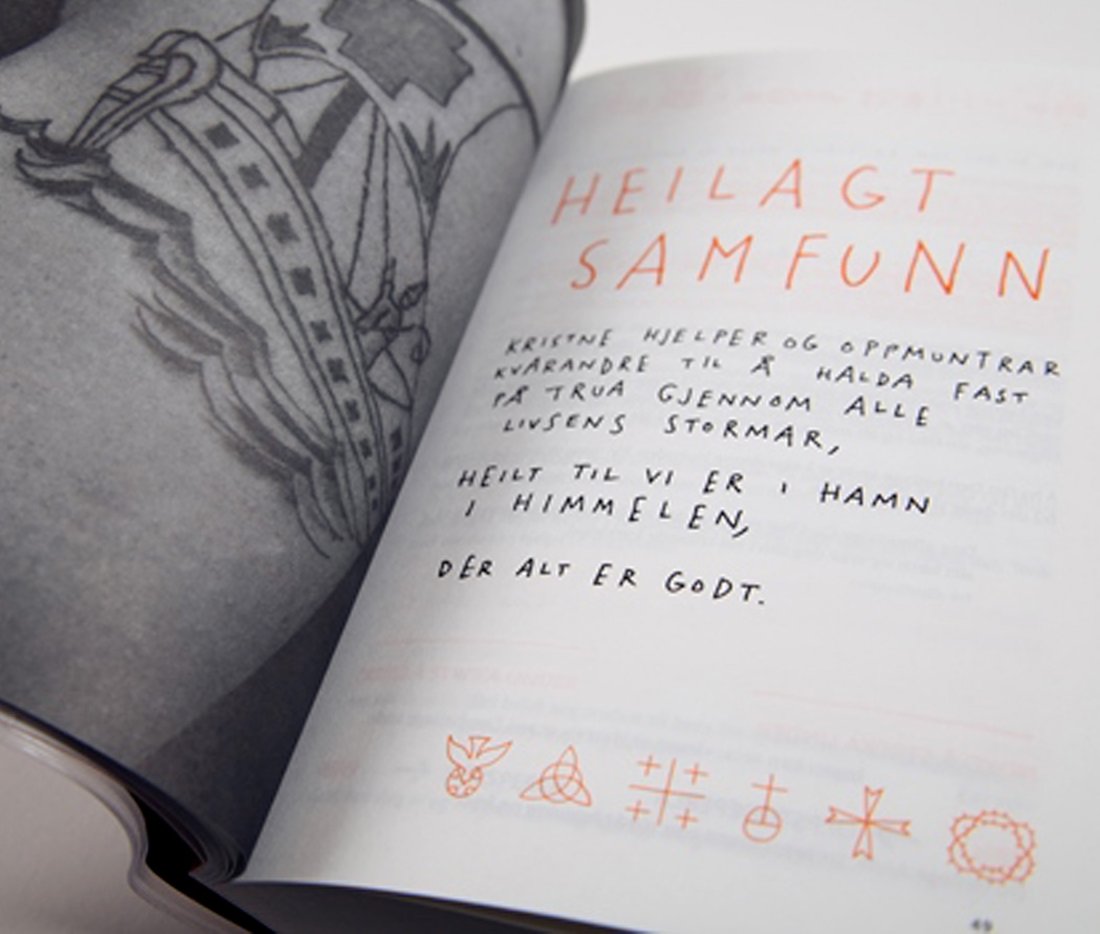 HEILAGT
SAMFUNN
KRISTNE HJELPER OG OPPMUNTRAR
KVARANDRE TIL Å HALDA FAST
PÅ TRUA GJENNOM ALLE
LIVSENS STORMAR,
HEILT TIL VI ER I HAMN
I HIMMELEN,
DER ALT ER GODT.